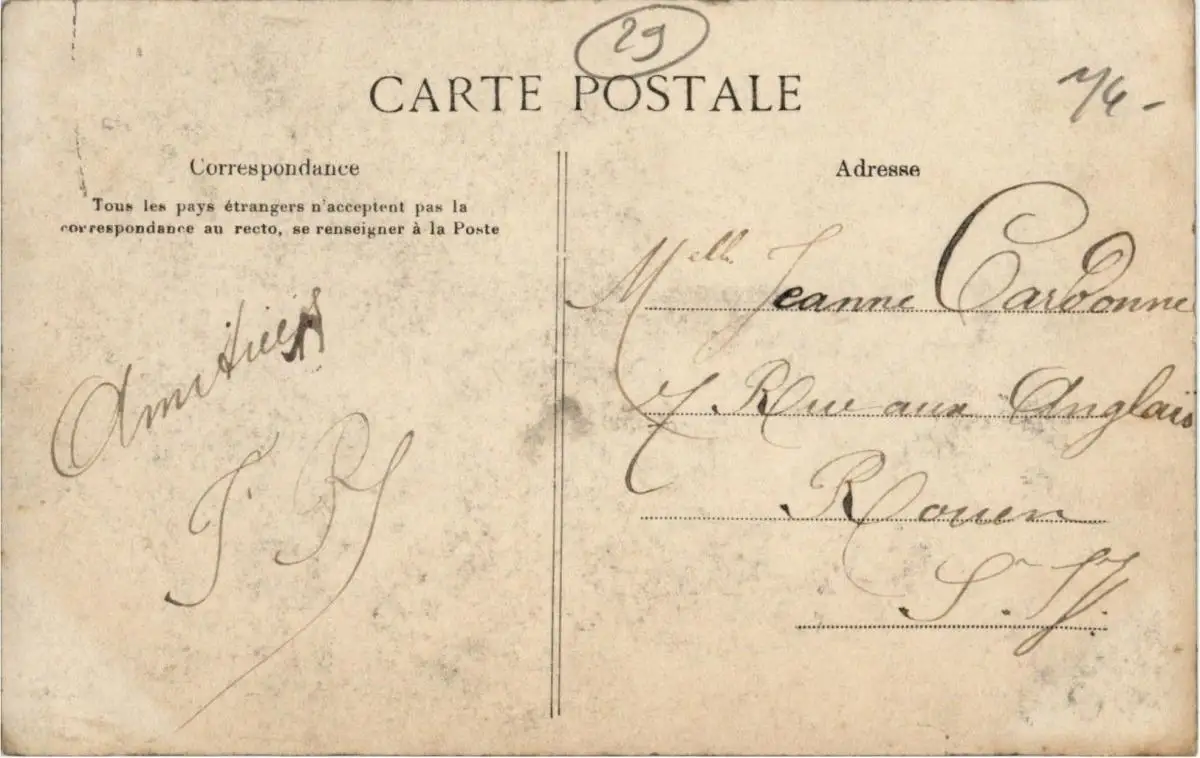 29
CARTE POSTALE
7/6 -
Correspondance
Tous les pays étrangers n'acceptent pas la
correspondance au recto, se renseigner à la Poste
Amitiés
Adresse
Melle Jeanne Carbonne
7. Rue aux Anglais
Rouen